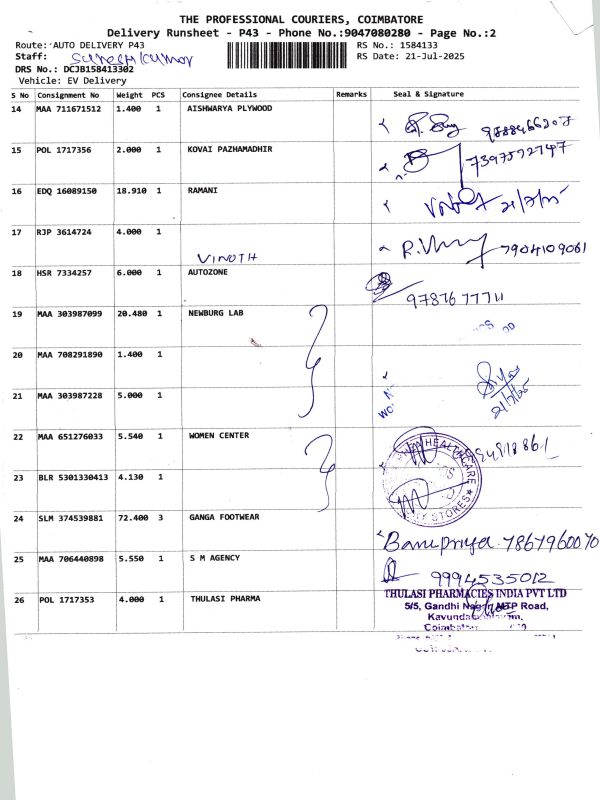 THE PROFESSIONAL COURIERS, COIMBATORE
Delivery Runsheet - P43 - Phone No.:9047080280 - Page No.:2
Route: AUTO DELIVERY P43 RS No.: 1584133
Staff: Sureshkumar RS Date: 21-Jul-2025
DRS No.: DCJB158413302
Vehicle: EV Delivery
S No Consignment No Weight PCS Consignee Details Remarks Seal & Signature
14 MAA 711671512 1.400 1 AISHWARYA PLYWOOD
15 POL 1717356 2.000 1 KOVAI PAZHAMADHIR 7397592747
16 EDQ 16089150 18.910 1 RAMANI
17 RJP 3614724 4.000 1 VINOTH 7904109061
18 HSR 7334257 6.000 1 AUTOZONE
19 MAA 303987099 20.480 1 NEWBURG LAB
20 MAA 708291890 1.400 1
21 MAA 303987228 5.000 1
22 MAA 651276033 5.540 1 WOMEN CENTER
HEALTHCARE
STORES
23 BLR 5301330413 4.130 1
24 SLM 374539881 72.400 3 GANGA FOOTWEAR
Banupriya 7867960070
25 MAA 706440898 5.550 1 S M AGENCY 9994535012
26 POL 1717353 4.000 1 THULASI PHARMA
THULASI PHARMACIES INDIA PVT LTD
5/5, Gandhi Nagar, MTP Road,